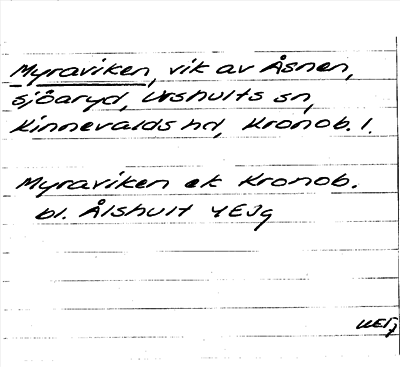 Myraviken, vik av Åsnen,
Sjöaryd, Urshults sn,
Kinnevalds hd, Kronob. l.
Myraviken ek Kronob.
bl. Ålshult 4EJg